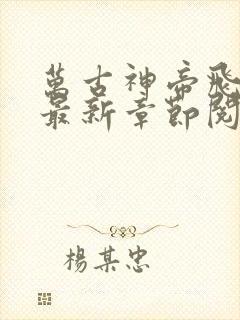 萬古神帝飛
最新章節閱
楊某忠